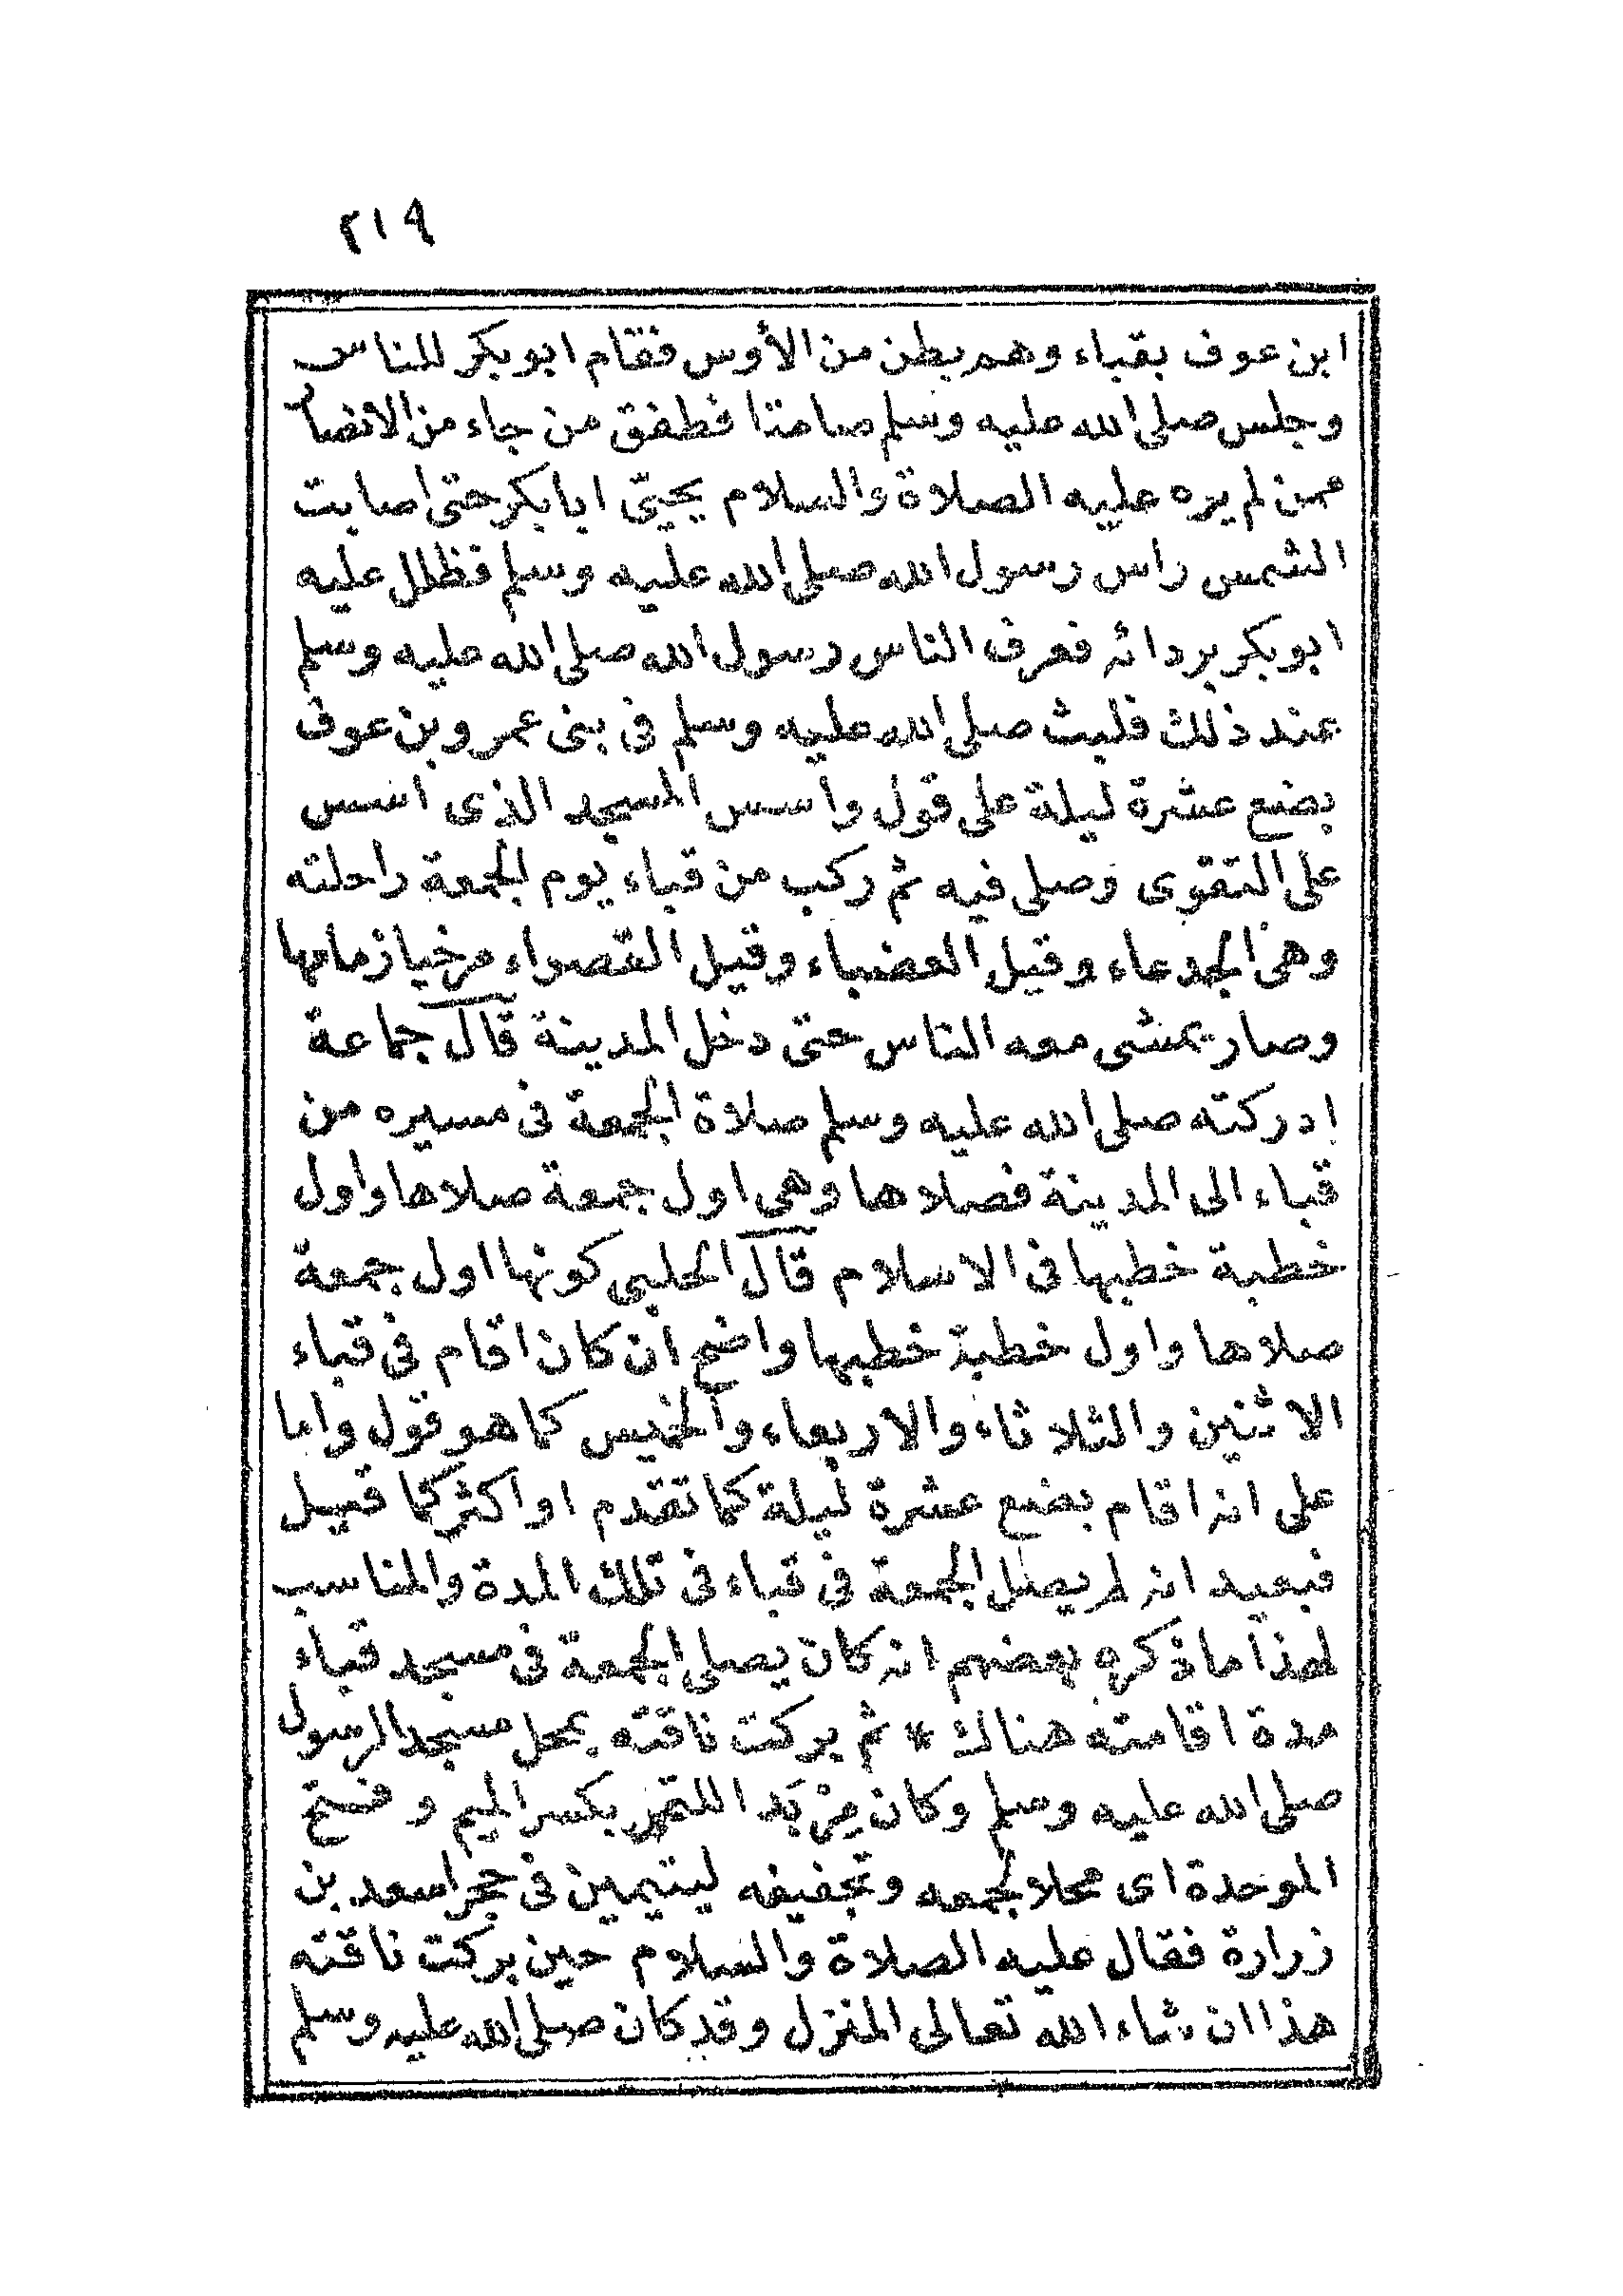 ٢١٩
ابن عوف بقباء وهم بطن من الأوس فقام ابو بكر للناس
وجلس صلى الله عليه وسلم صامتا فطفق من جاء من الانصار
ممن لم يره عليه الصلاة والسلام يحيّي ابا بكر حتى اصابت
الشمس راس رسول الله صلى الله عليه وسلم فظلل عليه
ابو بكر بردائه فعرف الناس رسول الله صلى الله عليه وسلم
عند ذلك فلبث صلى الله عليه وسلم في بني عمرو بن عوف
بضع عشرة ليلة على قول وأسس المسجد الذى أسس
على التقوى وصلى فيه ثم ركب من قباء يوم الجمعة راحلته
وهي الجدعاء وقيل العضباء وقيل القصواء مرخيا زمامها
وصار يمشى معه الناس حتى دخل المدينة قال جماعة
ادركته صلى الله عليه وسلم صلاة الجمعة في مسيره من
قباء الى المدينة فصلاها وهي اول جمعة صلاها واول
خطبة خطبها في الاسلام قال الحلبي كونها اول جمعة
صلاها واول خطبة خطبها واضح أن كان اقام في قباء
الاثنين والثلاثاء والاربعاء والخميس كما هو قول واما
على انه اقام بضع عشرة ليلة كما تقدم او اكثر كما قيل
فبعيد انه لم يصل الجمعة في قباء في تلك المدة والمناسب
لهذا ما ذكره بعضهم انه كان يصلي الجمعة في مسجد قباء
مدة اقامته هناك * ثم بركت ناقته بمحل مسجد الرسول
صلى الله عليه وسلم وكان مِرْبَدا للتمر بكسر الميم وفتح
الموحدة اى محلا لجمعه وتجفيفه ليتيمين في حجر اسعد بن
زرارة فقال عليه الصلاة والسلام حين بركت ناقته
هذا ان شاء الله تعالى المنزل وقد كان صلى الله عليه وسلم